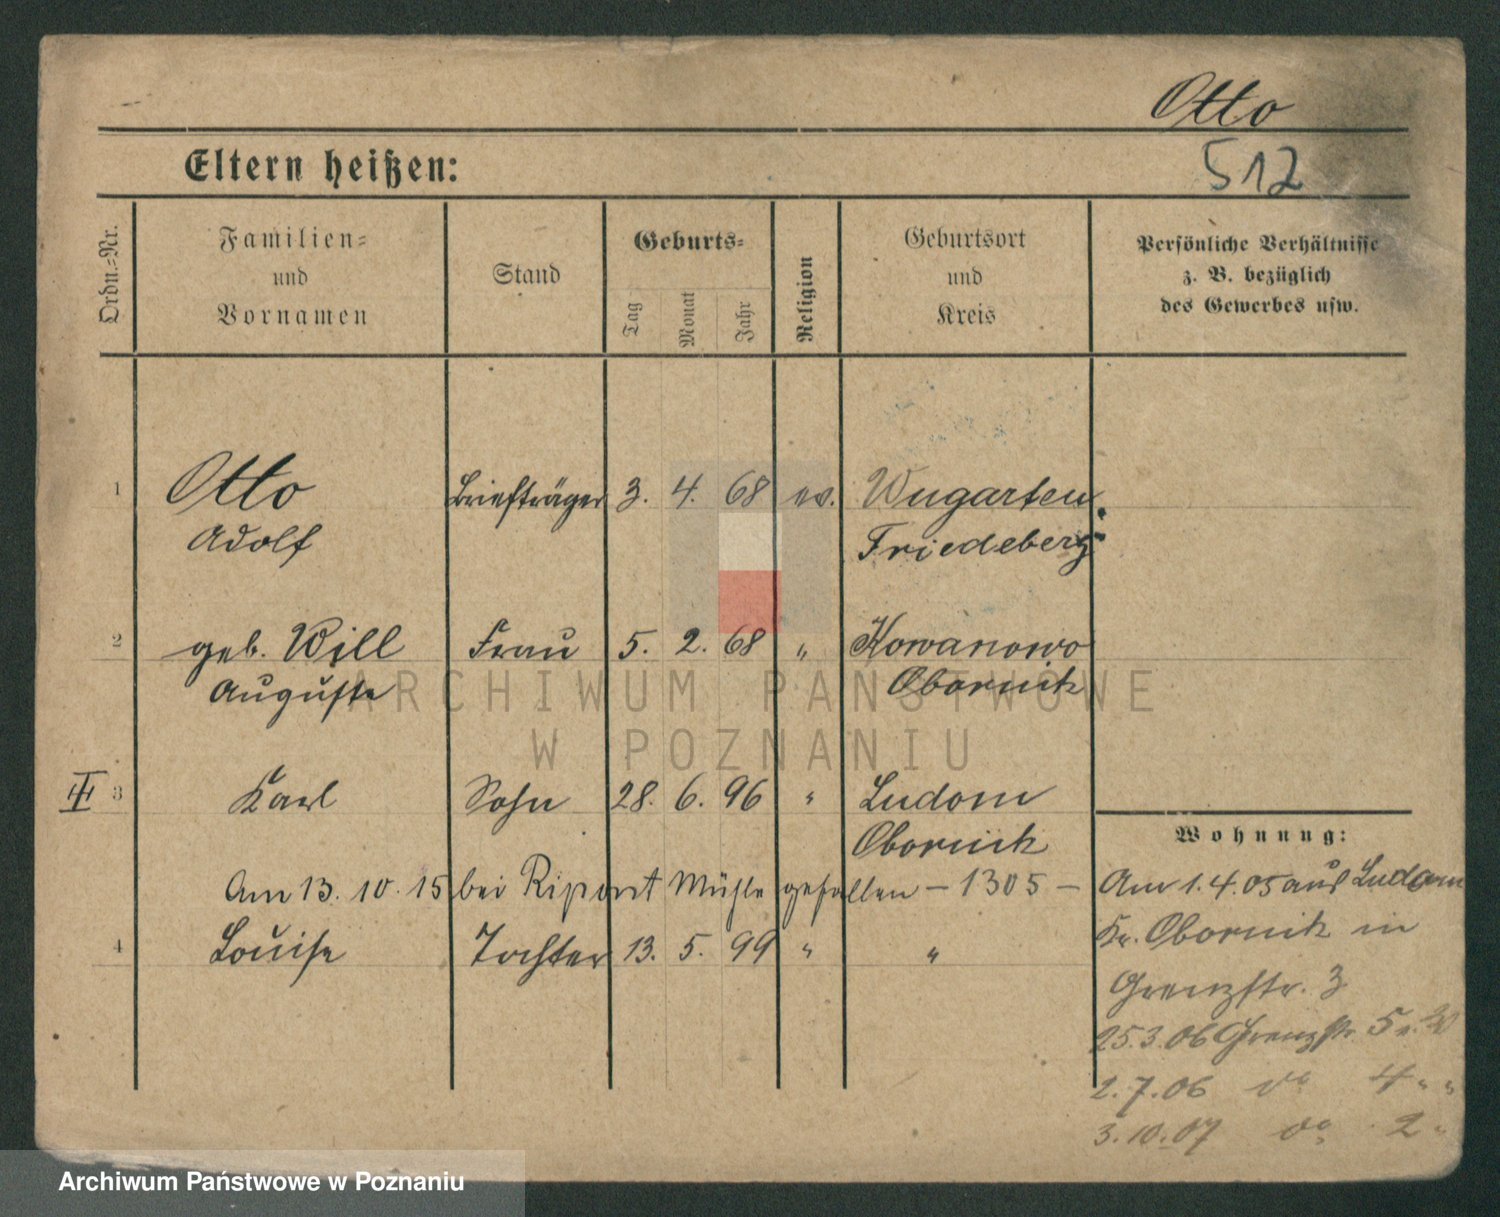 Otto
Eltern heißen:
512
Ordn.-Nr.
Familien-
und
Vornamen
Stand
Geburts-
Tag
Monat
Jahr
Religion
Geburtsort
und
Kreis
Persönliche Verhältnisse
z. B. bezüglich
des Gewerbes usw.
1 Otto Briefträger 3. 4. 68 ev. Wugarten
Adolf Friedeberg
2 geb. Will Frau 5. 2. 68 " Kowanowo
Auguste Obornik
ARCHIWUM PAŃSTWOWE
W POZNANIU
3 Karl Sohn 28. 6. 96 " Ludom
Obornik
Am 13. 10. 15 bei Ripont Mühle gefallen – 1305 –
4 Louise Tochter 13. 5. 99 " "
Wohnung:
Am 1.4.05 aus Ludom
Kr. Obornik in
Grenzstr. 3
25.3.06 Grenzstr. 5
2.7.06 do 4 " "
3.10.07 do 2 "
Archiwum Państwowe w Poznaniu